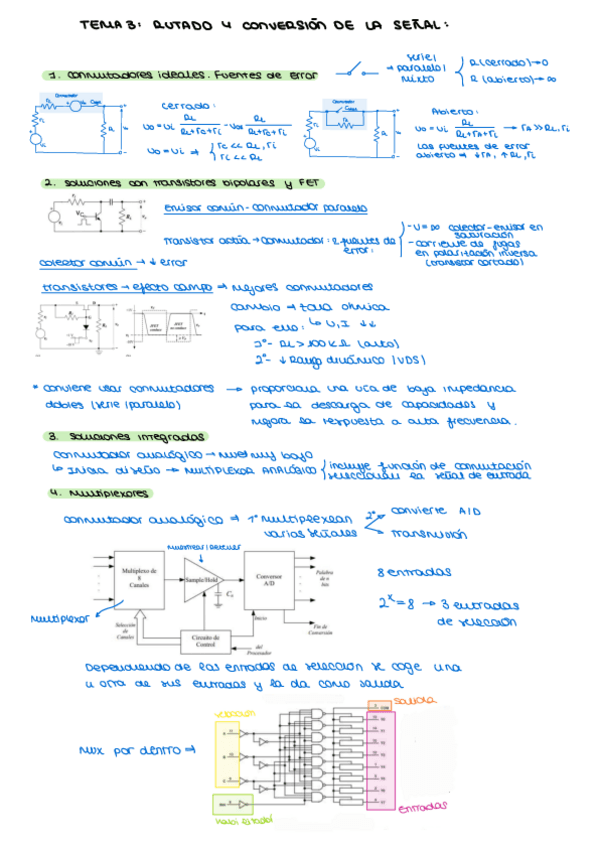 TEMA 3: RUTADO Y CONVERSIÓN DE LA SEÑAL:
1. Conmutadores ideales. Fuentes de error
serie/
paralelo/
mixto
R (cerrado) → 0
R (abierto) → ∞
Conmutador
cerrado:
Vo = Vi RL / (RL+rc+ri) - Voff RL / (RL+rc+ri)
Vo ≈ Vi ⇒ { rc << RL, ri
ri << RL
Conmutador
Abierto:
Vo = Vi RL / (RL+rA+ri) → rA >> RL, ri
Las fuentes de error
abierto ⇒ ↓rA, ↑RL, ri
2. Soluciones con transistores bipolares y FET
Emisor común - conmutador paralelo
Transistor actúa → conmutador: 2 fuentes de
error:
- U = ∞ colector-emisor en
saturación
- corriente de fugas
en polarización inversa
(transistor cortado)
colector común → ↓ error
transistores → efecto campo → mejores conmutadores
cambio → tara ohmica
para ello: ↳ U, I ↓↓
1º- RL > 100 kΩ (alto)
2º- ↓ Rango dinámico (VDS)
* conviene usar conmutadores → proporciona una vía de baja impedancia
dobles (serie/paralelo) para la descarga de capacidades y
mejora la respuesta a alta frecuencia.
3. Soluciones integradas
conmutador analógico → nivel muy bajo
↳ Inicia diseño → MULTIPLEXOR ANALÓGICO { incluye función de conmutación
seleccionan la señal de entrada
4. Multiplexores
conmutador analógico ⇒ 1º multiplexan
varias señales
2º convierte A/D
transmisión
muestrear/retener
Multiplexo de
8
Canales
Sample/Hold
Conversor
A/D
Palabra
de n
bits
Multiplexor
Selección
de
Canales
Circuito de
Control
Inicio
del
Procesador
Fin de
Conversión
8 entradas
2^x = 8 → 3 entradas
de selección
Dependiendo de las entradas de selección se coge una
u otra de sus entradas y la da como salida
selección
salida
MUX por dentro ⇒
entradas
habilitador